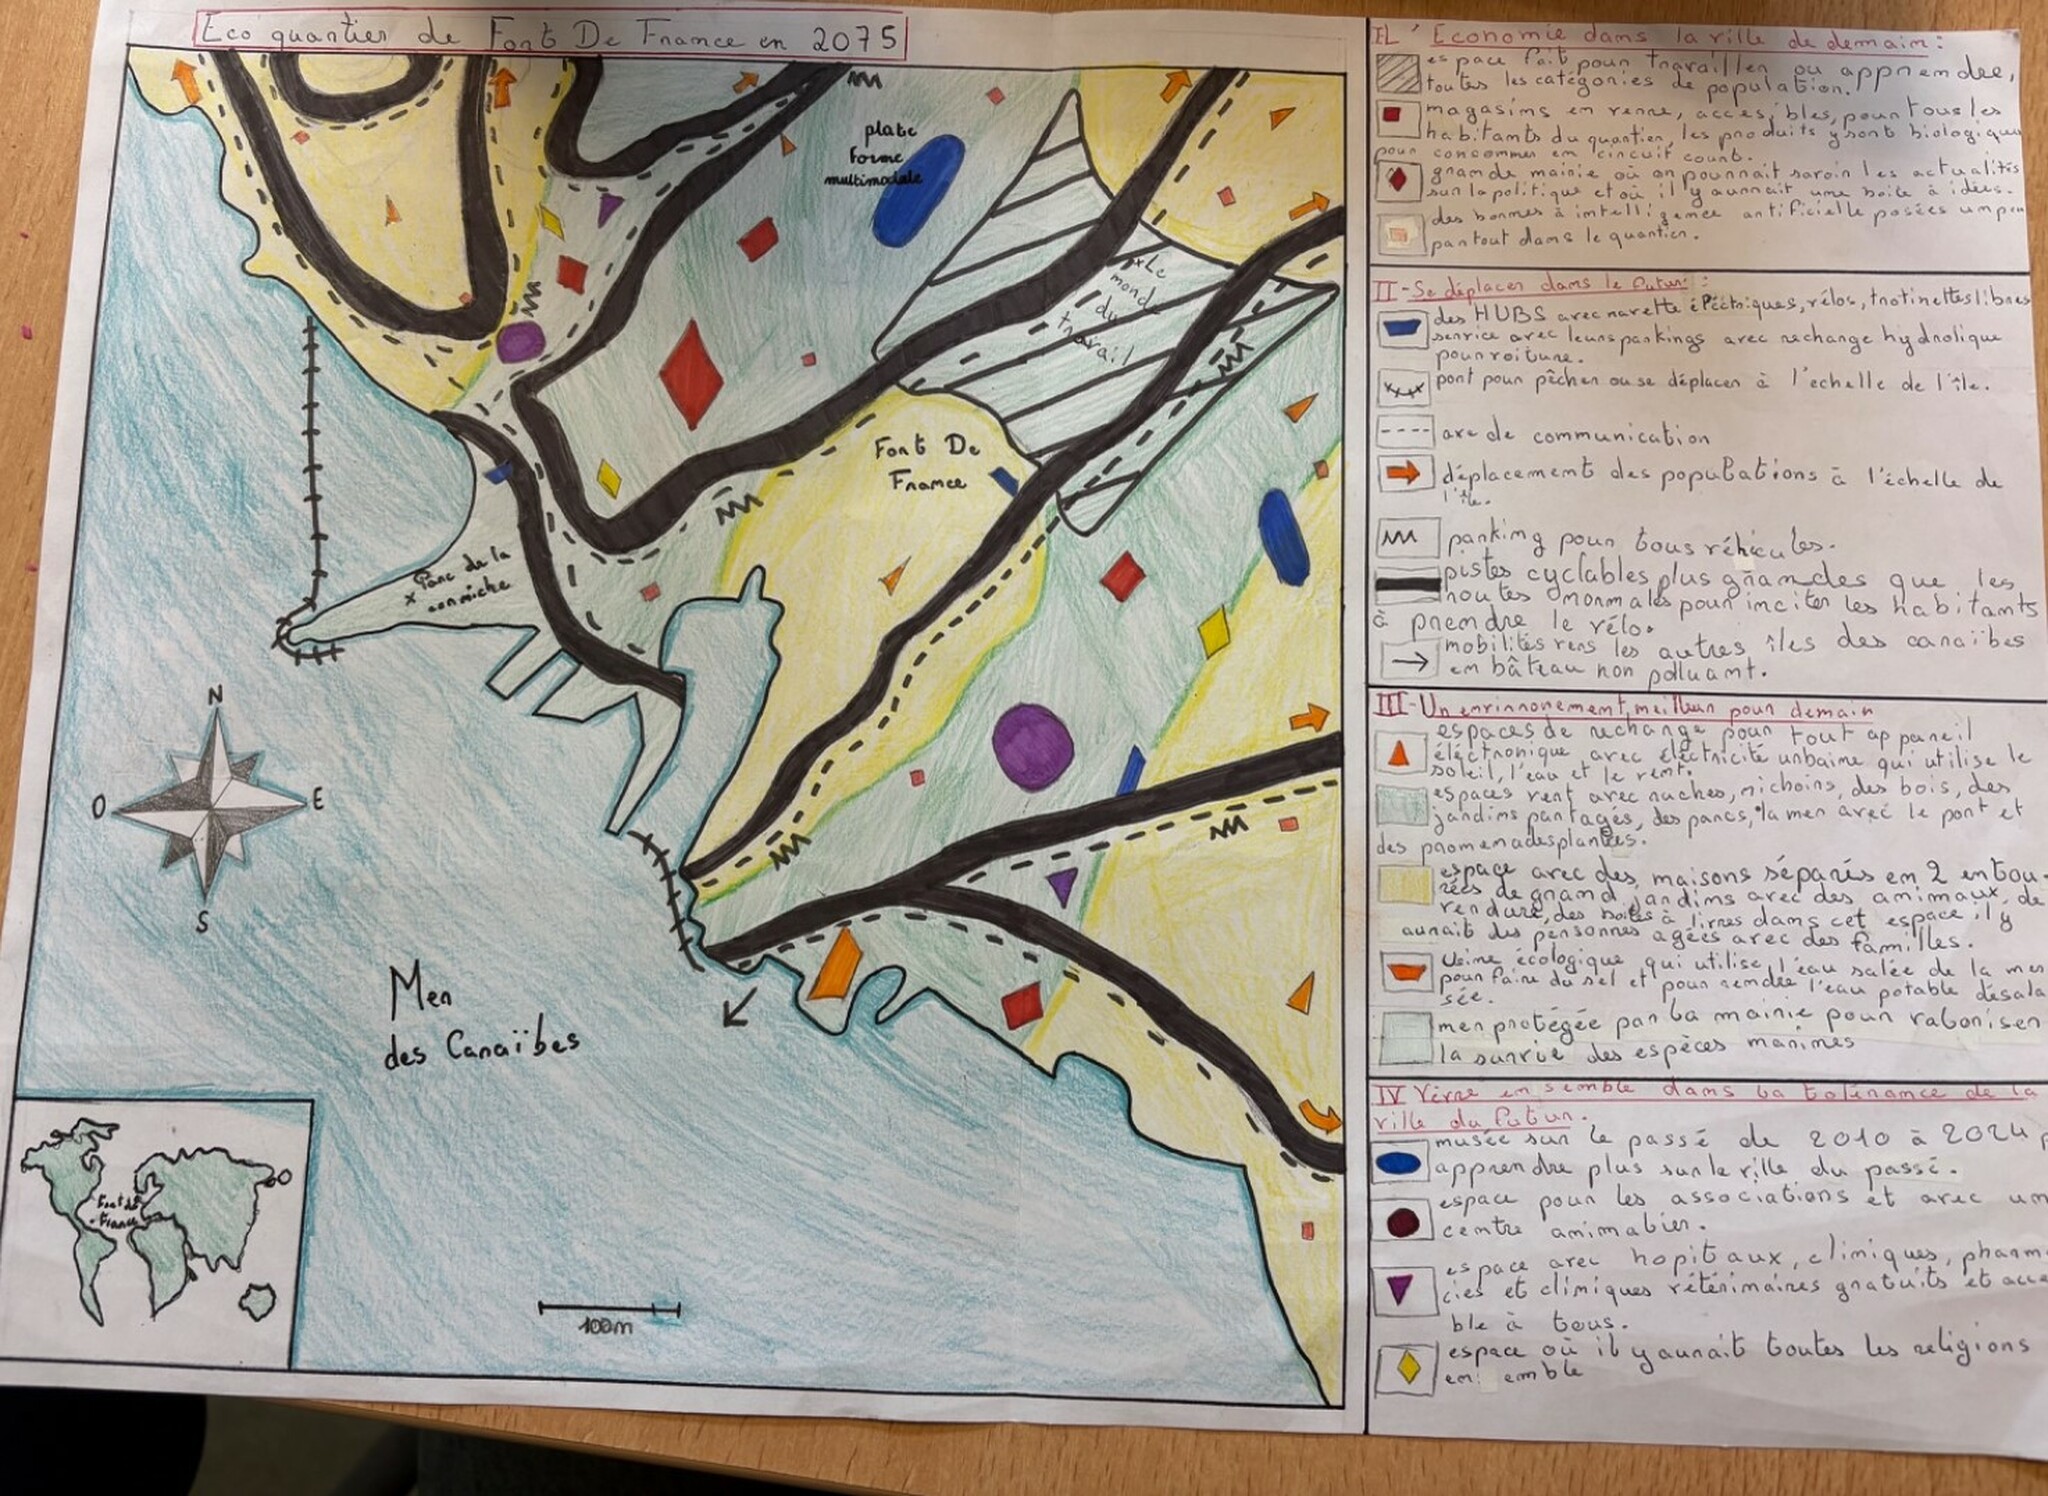 Eco quartier de Fort De France en 2075
plate
forme
multimodale
x Le
monde
du
travail
Fort De
France
Parc de la
x corniche
N
O
E
S
Mer
des Caraïbes
Fort de
France
100m
I L'Économie dans la ville de demain :
espace fait pour travailler ou apprendre,
toutes les catégories de population.
magasins en verre, accessibles, pour tous les
habitants du quartier, les produits y sont biologique
pour consommer en circuit court.
grande mairie où on pourrait savoir les actualités
sur la politique et où il y aurait une boite à idées.
des bornes à intelligence artificielle posées un peu
partout dans le quartier.
II - Se déplacer dans le futur :
des HUBS avec navette éléctriques, vélos, trotinettes libres
service avec leurs parkings avec rechange hydrolique
pour voiture.
pont pour pêcher ou se déplacer à l'echelle de l'île.
axe de communication
déplacement des populations à l'échelle de
l'île.
parking pour tous véhicules.
pistes cyclables plus grandes que les
routes normales pour inciter les habitants
à prendre le vélo.
mobilités vers les autres îles des caraïbes
en bâteau non polluant.
III - Un environnement meilleur pour demain
espaces de rechange pour tout appareil
éléctronique avec éléctricité urbaine qui utilise le
soleil, l'eau et le vent.
espaces vert avec ruches, nichoirs, des bois, des
jardins partagés, des parcs, la mer avec le pont et
des promenades plantées.
espace avec des maisons séparés en 2 entou-
rées de grand jardins avec des animaux, de
verdure, des boites à livres dans cet espace, il y
aurait des personnes agées avec des familles.
Usine écologique qui utilise l'eau salée de la mer
pour faire du sel et pour rendre l'eau potable désala
sée.
mer protégée par la mairie pour favoriser
la survie des espèces marines
IV Vivre ensemble dans la tolérance de la
ville du futur.
musée sur le passé de 2010 à 2024 p
apprendre plus sur la ville du passé.
espace pour les associations et avec un
centre animalier.
espace avec hopitaux, cliniques, pharma
cies et cliniques vétérinaires gratuits et acce
ble à tous.
espace où il y aurait toutes les religions
en emble